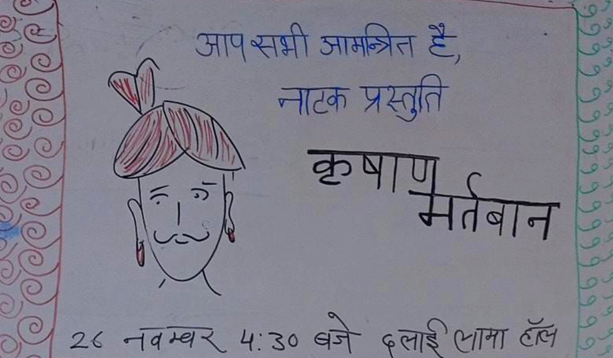 आप सभी आमन्त्रित है,
नाटक प्रस्तुति
कृषाण
मर्तबान
26 नवम्बर 4:30 बजे दलाई लामा हॉल